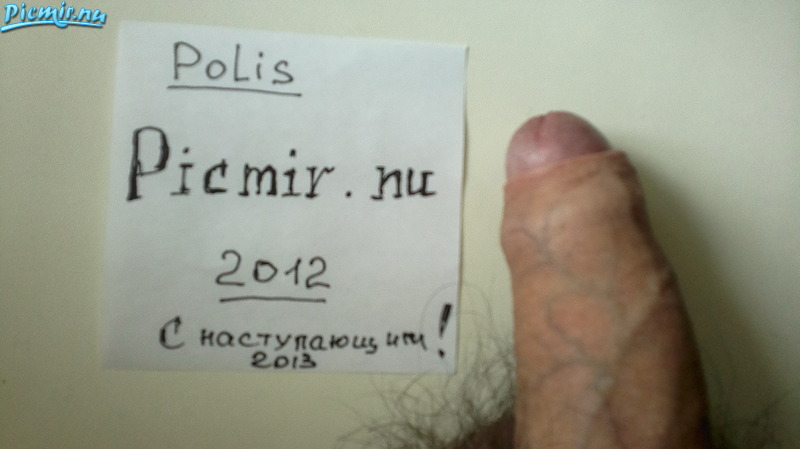 Picmir.nu
Polis
Picmir.nu
2012
С наступающим!
2013